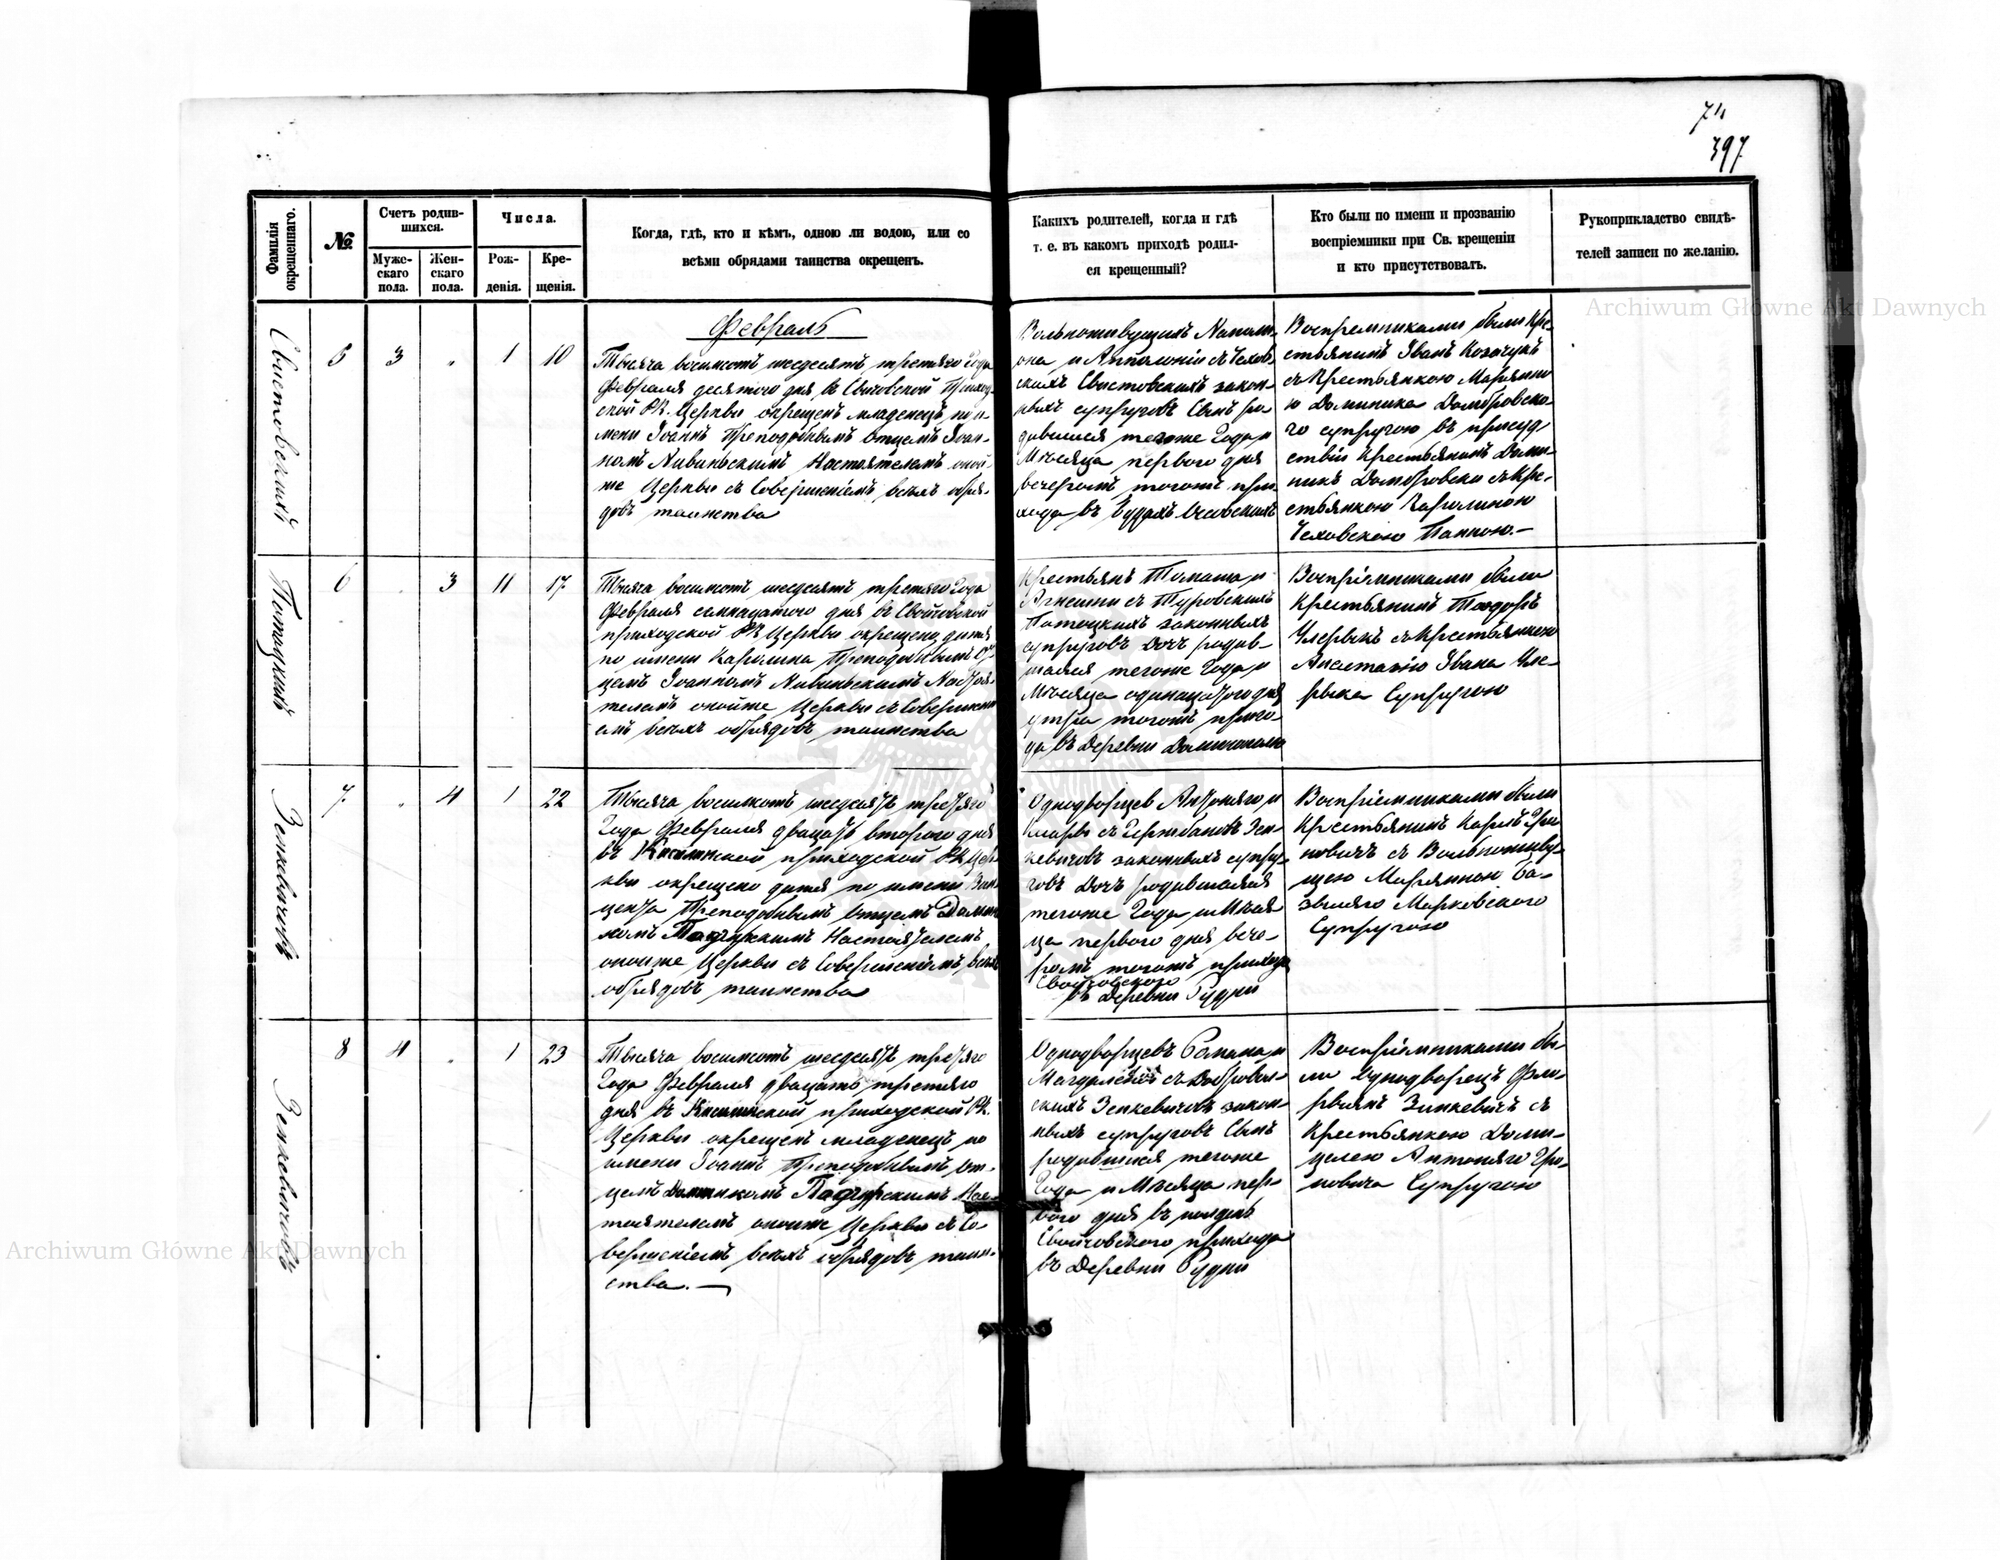 74
397
Фамилія окрещеннаго.
№
Счетъ родив-
шихся.
Мужс-
скаго
пола.
Жен-
скаго
пола.
Числа.
Рож-
денія.
Кре-
щенія.
Когда, гдѣ, кто и кѣмъ, одною ли водою, или со
всѣми обрядами таинства окрещенъ.
Какихъ родителей, когда и гдѣ
т. е. въ какомъ приходѣ родил-
ся крещенный?
Кто были по имени и прозванію
воспріемники при Св. крещеніи
и кто присутствовалъ.
Рукоприкладство свидѣ-
телей записи по желанію.
Февраль
Свистовскій
5 3 „ 1 10
Тысяча восимсотъ шесдесятъ третяго Года
Февраля десятого дня, въ Свичовской Приход-
ской РК. Церкви окрещенъ младенецъ, по и-
мени Іоаннъ Преподобнымъ Отцемъ Іоан-
номъ Настоятелемъ оной-
же Церкви съ Совершеніемъ всѣхъ обря-
довъ таинства
Вольноживущихъ
она и Апполоніи съ Чехов-
скихъ Свистовскихъ закон-
ныхъ супруговъ Сынъ ро-
дившися тогоже Года и
Мѣсяца первого дня
вечеромъ тогожъ при-
хода въ Будахъ
Воспремниками были Кре-
стьянинъ Іванъ Козачукъ
съ Крестьянкою Марянно-
ю Доминика Домбровско-
го супругою въ присуд-
ствіи Крестьянинъ Доми-
никъ Домбровски съ Кре-
стьянкою Каролиною
Чеховскою Панною.—
Потоцкий
6 „ 3 11 17
Тысяча восимсотъ шесдесятъ третяго Года
Февраля семнацатого дня въ Свойчовской
приходской РК Церкви окрещено дитя
по имени Каролина Преподобнымъ От-
цемъ Іоанномъ Настоя-
телемъ онойже Церкви съ Совершені-
емъ всѣхъ обрядовъ таинства
Крестьянъ Томаша и
Агнешки съ Туровскихъ
Потоцкихъ законныхъ
супруговъ Доч родив-
шаяся тогоже Года и
Мѣсяца одинацатого дня
утра тогожъ прихо-
да въ Деревни Доминополю
Воспріемниками были
Крестьянинъ Тодоръ
съ Крестьянкою
Анастазію Івана
Супругою
Зенкевичовъ
7. „ 4 1 22
Тысяча восимсотъ шесдесятъ третяго
Года Февраля двацать второго дня
въ Киселинской приходской РК Цер-
кви окрещено дитя по имени Вин-
цента Преподобнымъ Отцемъ Домин-
комъ Настоятелемъ
онойже Церкви съ Совершеніемъ всѣхъ
обрядовъ таинства
Однодворцев Антоняго и
Клары съ Зен-
кевичовъ законныхъ супру-
говъ Доч родившаяся
тогоже Года и Мѣся-
ца первого дня вече-
ромъ тогожъ прихода
Свойчовского
въ Деревни Рудни
Воспріемниками были
Крестьянинъ Карлъ Гри-
новичъ съ Вольноживу-
щею Марянною Ба-
зылего Марковского
Супругою
Зенкевичовъ
8 4 „ 1 23
Тысяча восимсотъ шесдесятъ третяго
Года Февраля двацать третяго
дня въ Киселинской приходской РК.
Церкви окрещенъ младенецъ по
имени Іоаннъ Преподобнымъ От-
цемъ Доминикомъ Нас-
тоятелемъ онойже Церкви съ Со-
вершеніемъ всѣхъ обрядовъ таин-
ства.—
Однодворцевъ Романа и
Магдалены съ Добровол-
скихъ Зенкевичовъ закон-
ныхъ супруговъ Сынъ
родившися тогоже
Года и Мѣсяца пер-
вого дня въ полдень
Свойчовского прихода
въ Деревни Рудни
Воспріемниками бы-
ли Однодворецъ Фло-
рыянъ Зинкевичъ съ
Крестьянкою Доми-
целею Антоняго Гри-
новича Супругою
Archiwum Główne Akt Dawnych
Archiwum Główne Akt Dawnych